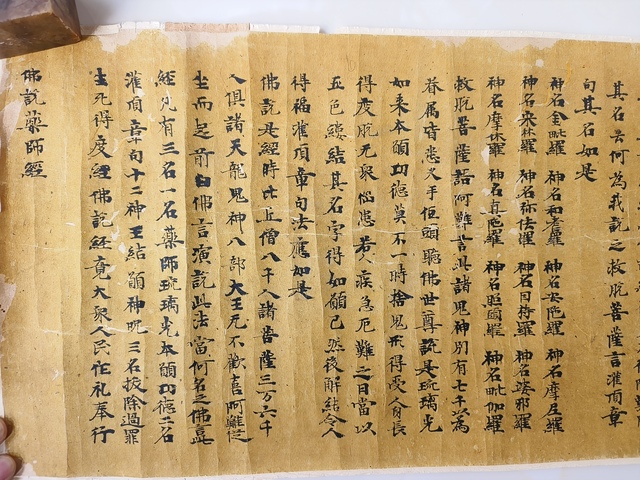 其名云何為我說之救脫菩薩言灌頂章
句其名如是
神名金毗羅 神名和耆羅 神名安陁羅 神名摩尼羅
神名宋林羅 神名弥佉羅 神名因持羅 神名婆耶羅
神名摩休羅 神名真陁羅 神名照頭羅 神名毗伽羅
救脫菩薩語阿難言此諸鬼神別有七千以為
眷属皆悉叉手伍頭聽佛世尊說是琉璃光
如来本願功德莫不一時捨鬼形得受人身長
得度脫无衆惱患若人疾急厄難之日當以
五色縷結其名字得如願已然後解結令人
得福灌頂章句法應如是
佛說是經時比丘僧八千人諸菩薩三万六千
人俱諸天龍鬼神八部大王无不歡喜阿難従
坐而起前白佛言演說此法當何名之佛言
經凡有三名一名藥師琉璃光本願功德二名
灌頂章句十二神王結願神呪三名拔除過罪
生死得度經佛說經竟大衆人民作礼奉行
佛說藥師經